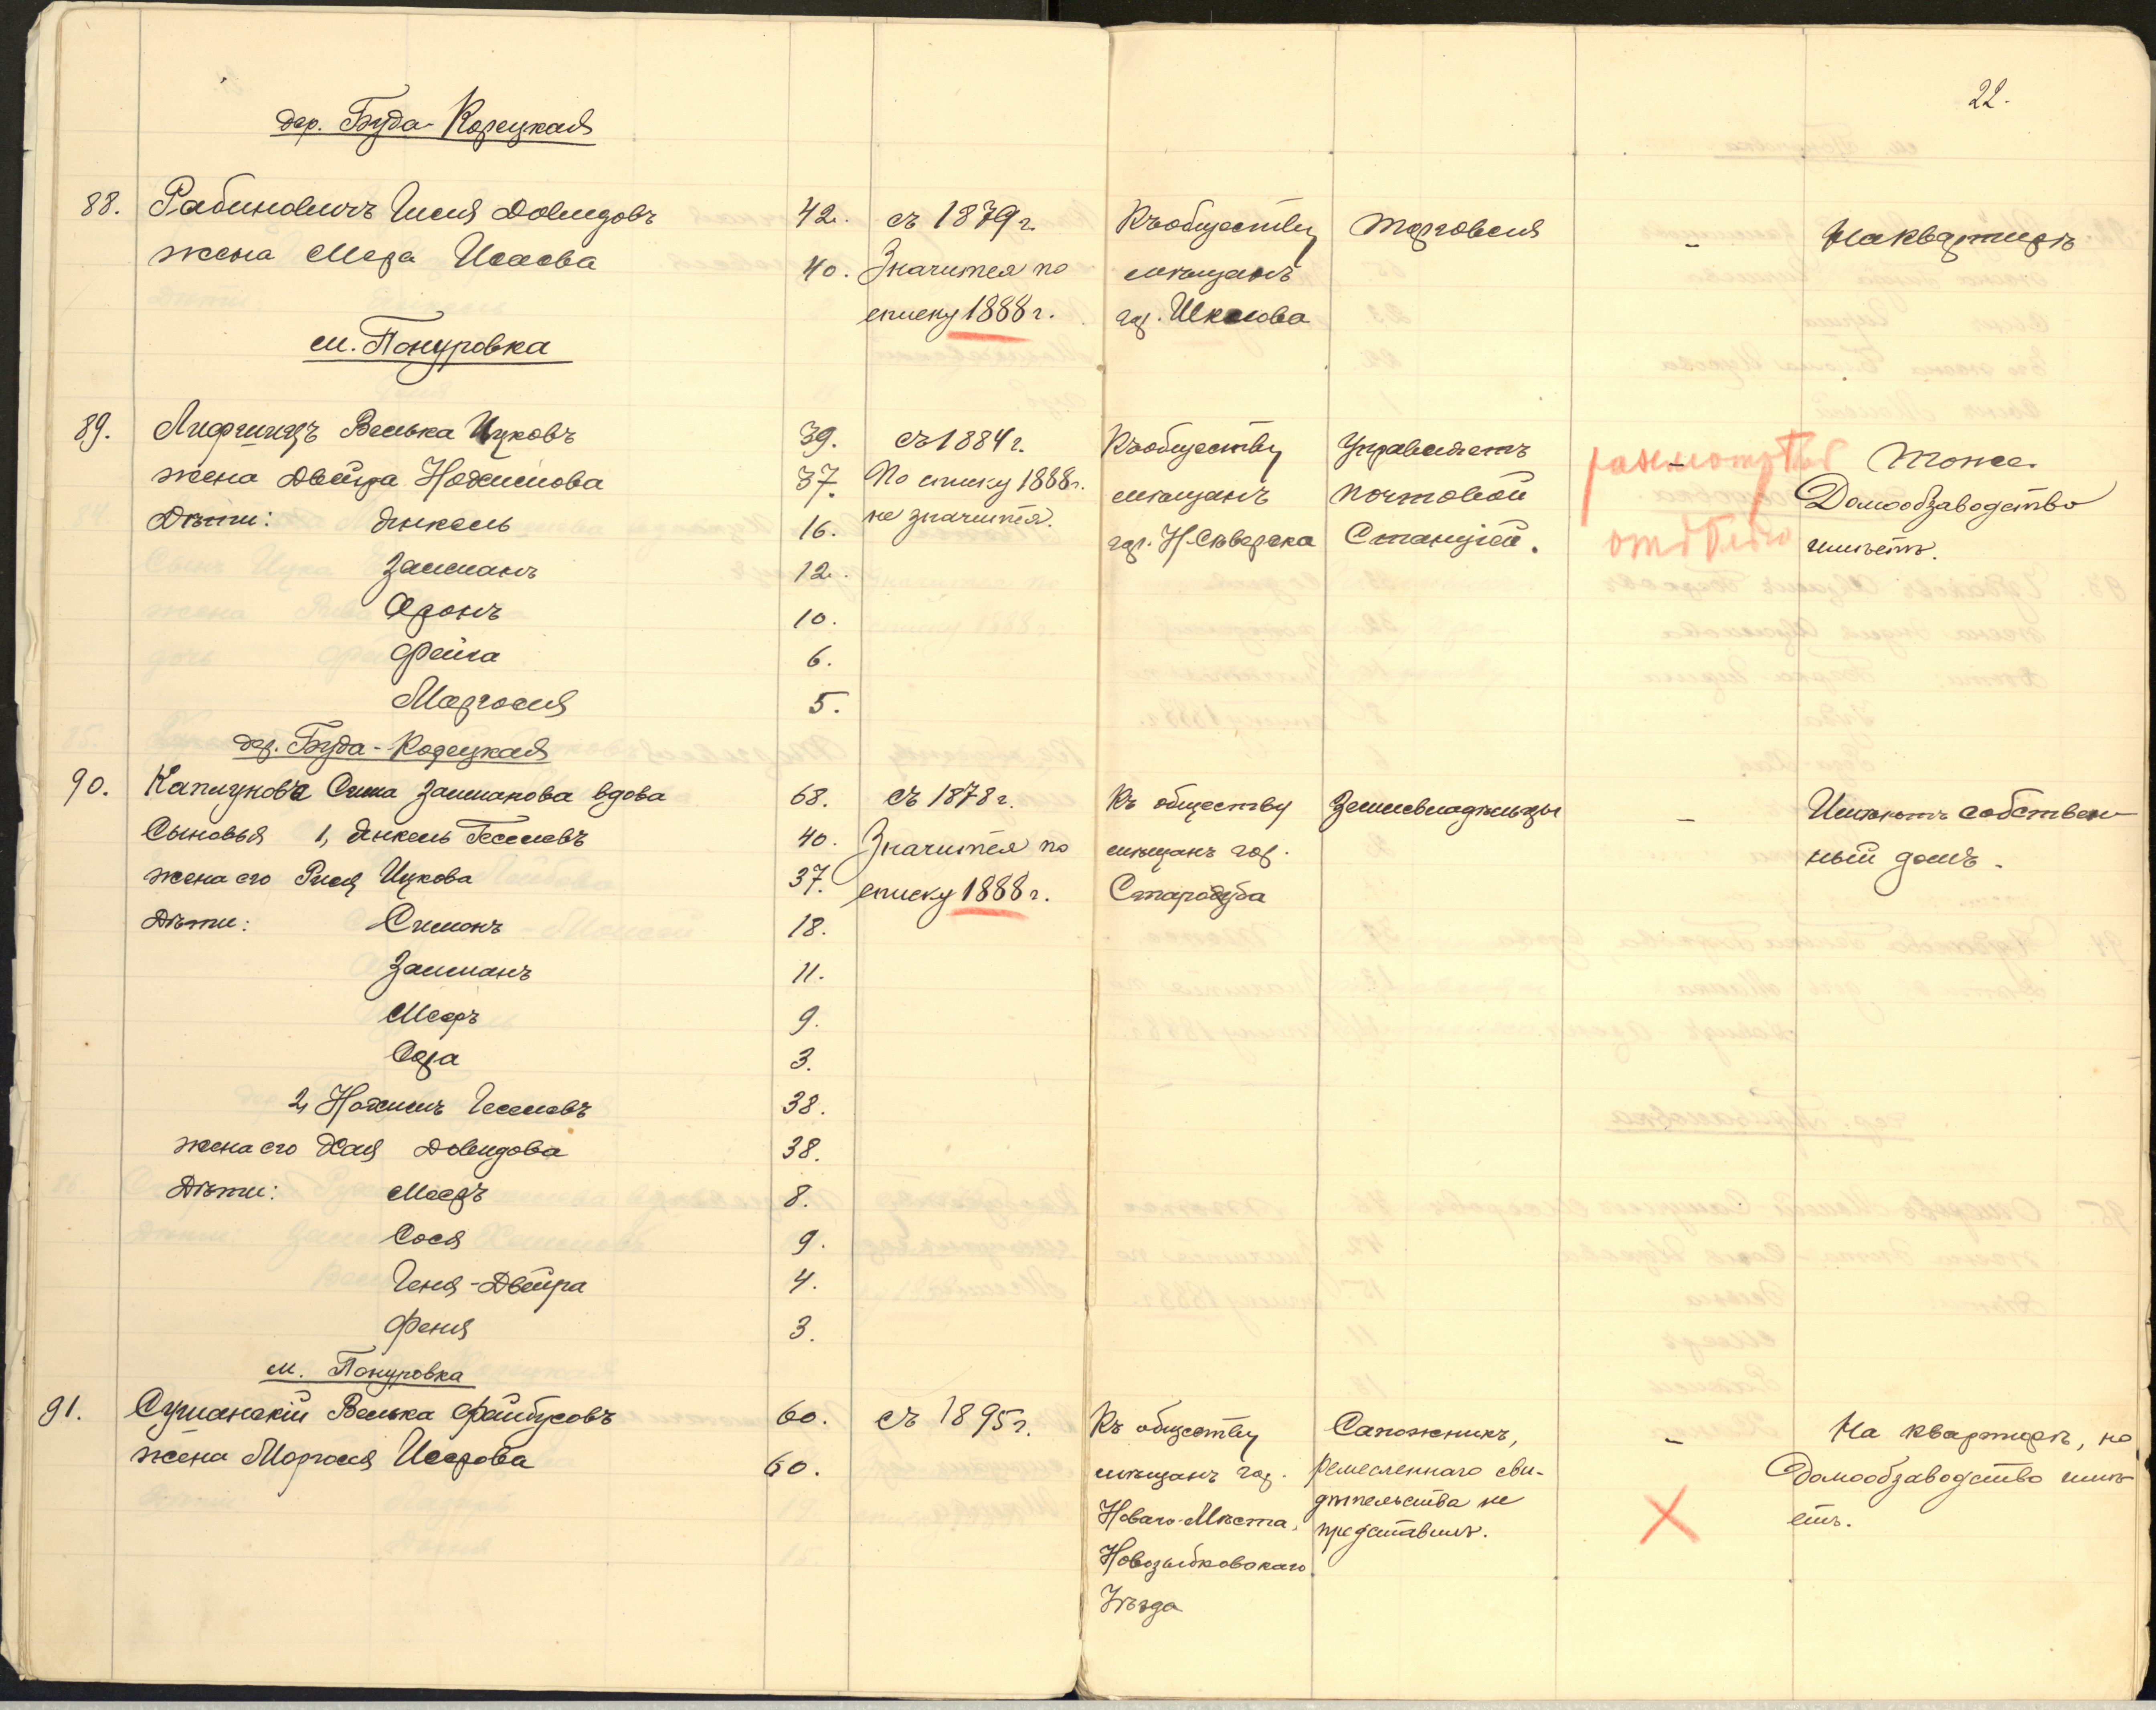 22.
дер. Буда-Корецкая
88. Рабиновичъ Гиля Довидовъ 42. съ 1879 г. Къ обществу Торговля - На квартирѣ
жена Мера Исаева 40. Значится по мѣщанъ
списку 1888 г. гор. Шклова
м. Понуровка
89. Лифшицъ Велька Ицковъ 39. съ 1884 г. Къ обществу Управляетъ - Тоже.
жена Двейра Нохимова 37. По списку 1888 г. мѣщанъ почтовой Домообзаводство
Дѣти: Янкель 16. не значится. гор. Н-Сѣверска Станціей. имѣетъ.
разсмотрѣть
отдѣльно
Залманъ 12.
Аронъ 10.
Фейга 6.
Маргося 5.
дер. Буда-Корецкая
90. Каплунова Сима Залманова вдова 68. съ 1878 г. Къ обществу Землевладѣльцы - Имѣютъ собствен-
Сыновья 1, Янкель Геселевъ 40. Значится по мѣщанъ гор. ный домъ.
жена его Рися Ицкова 37. списку 1888 г. Стародуба
Дѣти: Симонъ 18.
Залманъ 11.
Мееръ 9.
Сора 3.
2, Нохимъ Геселевъ 38.
жена его Хая Довидова 38.
Дѣти: Мееръ 8.
Сося 9.
Геня-Двейра 4.
Феня 3.
м. Понуровка
91. Сушанскій Велька Фейбусовъ 60. съ 1895 г. Къ обществу Сапожникъ, - На квартирѣ, но
жена Моргося Исерова 60. мѣщанъ гор. ремесленнаго сви- домообзаводство имѣ-
Новаго-Мѣста, дѣтельства не етъ.
Новозыбковскаго представилъ.
Уѣзда